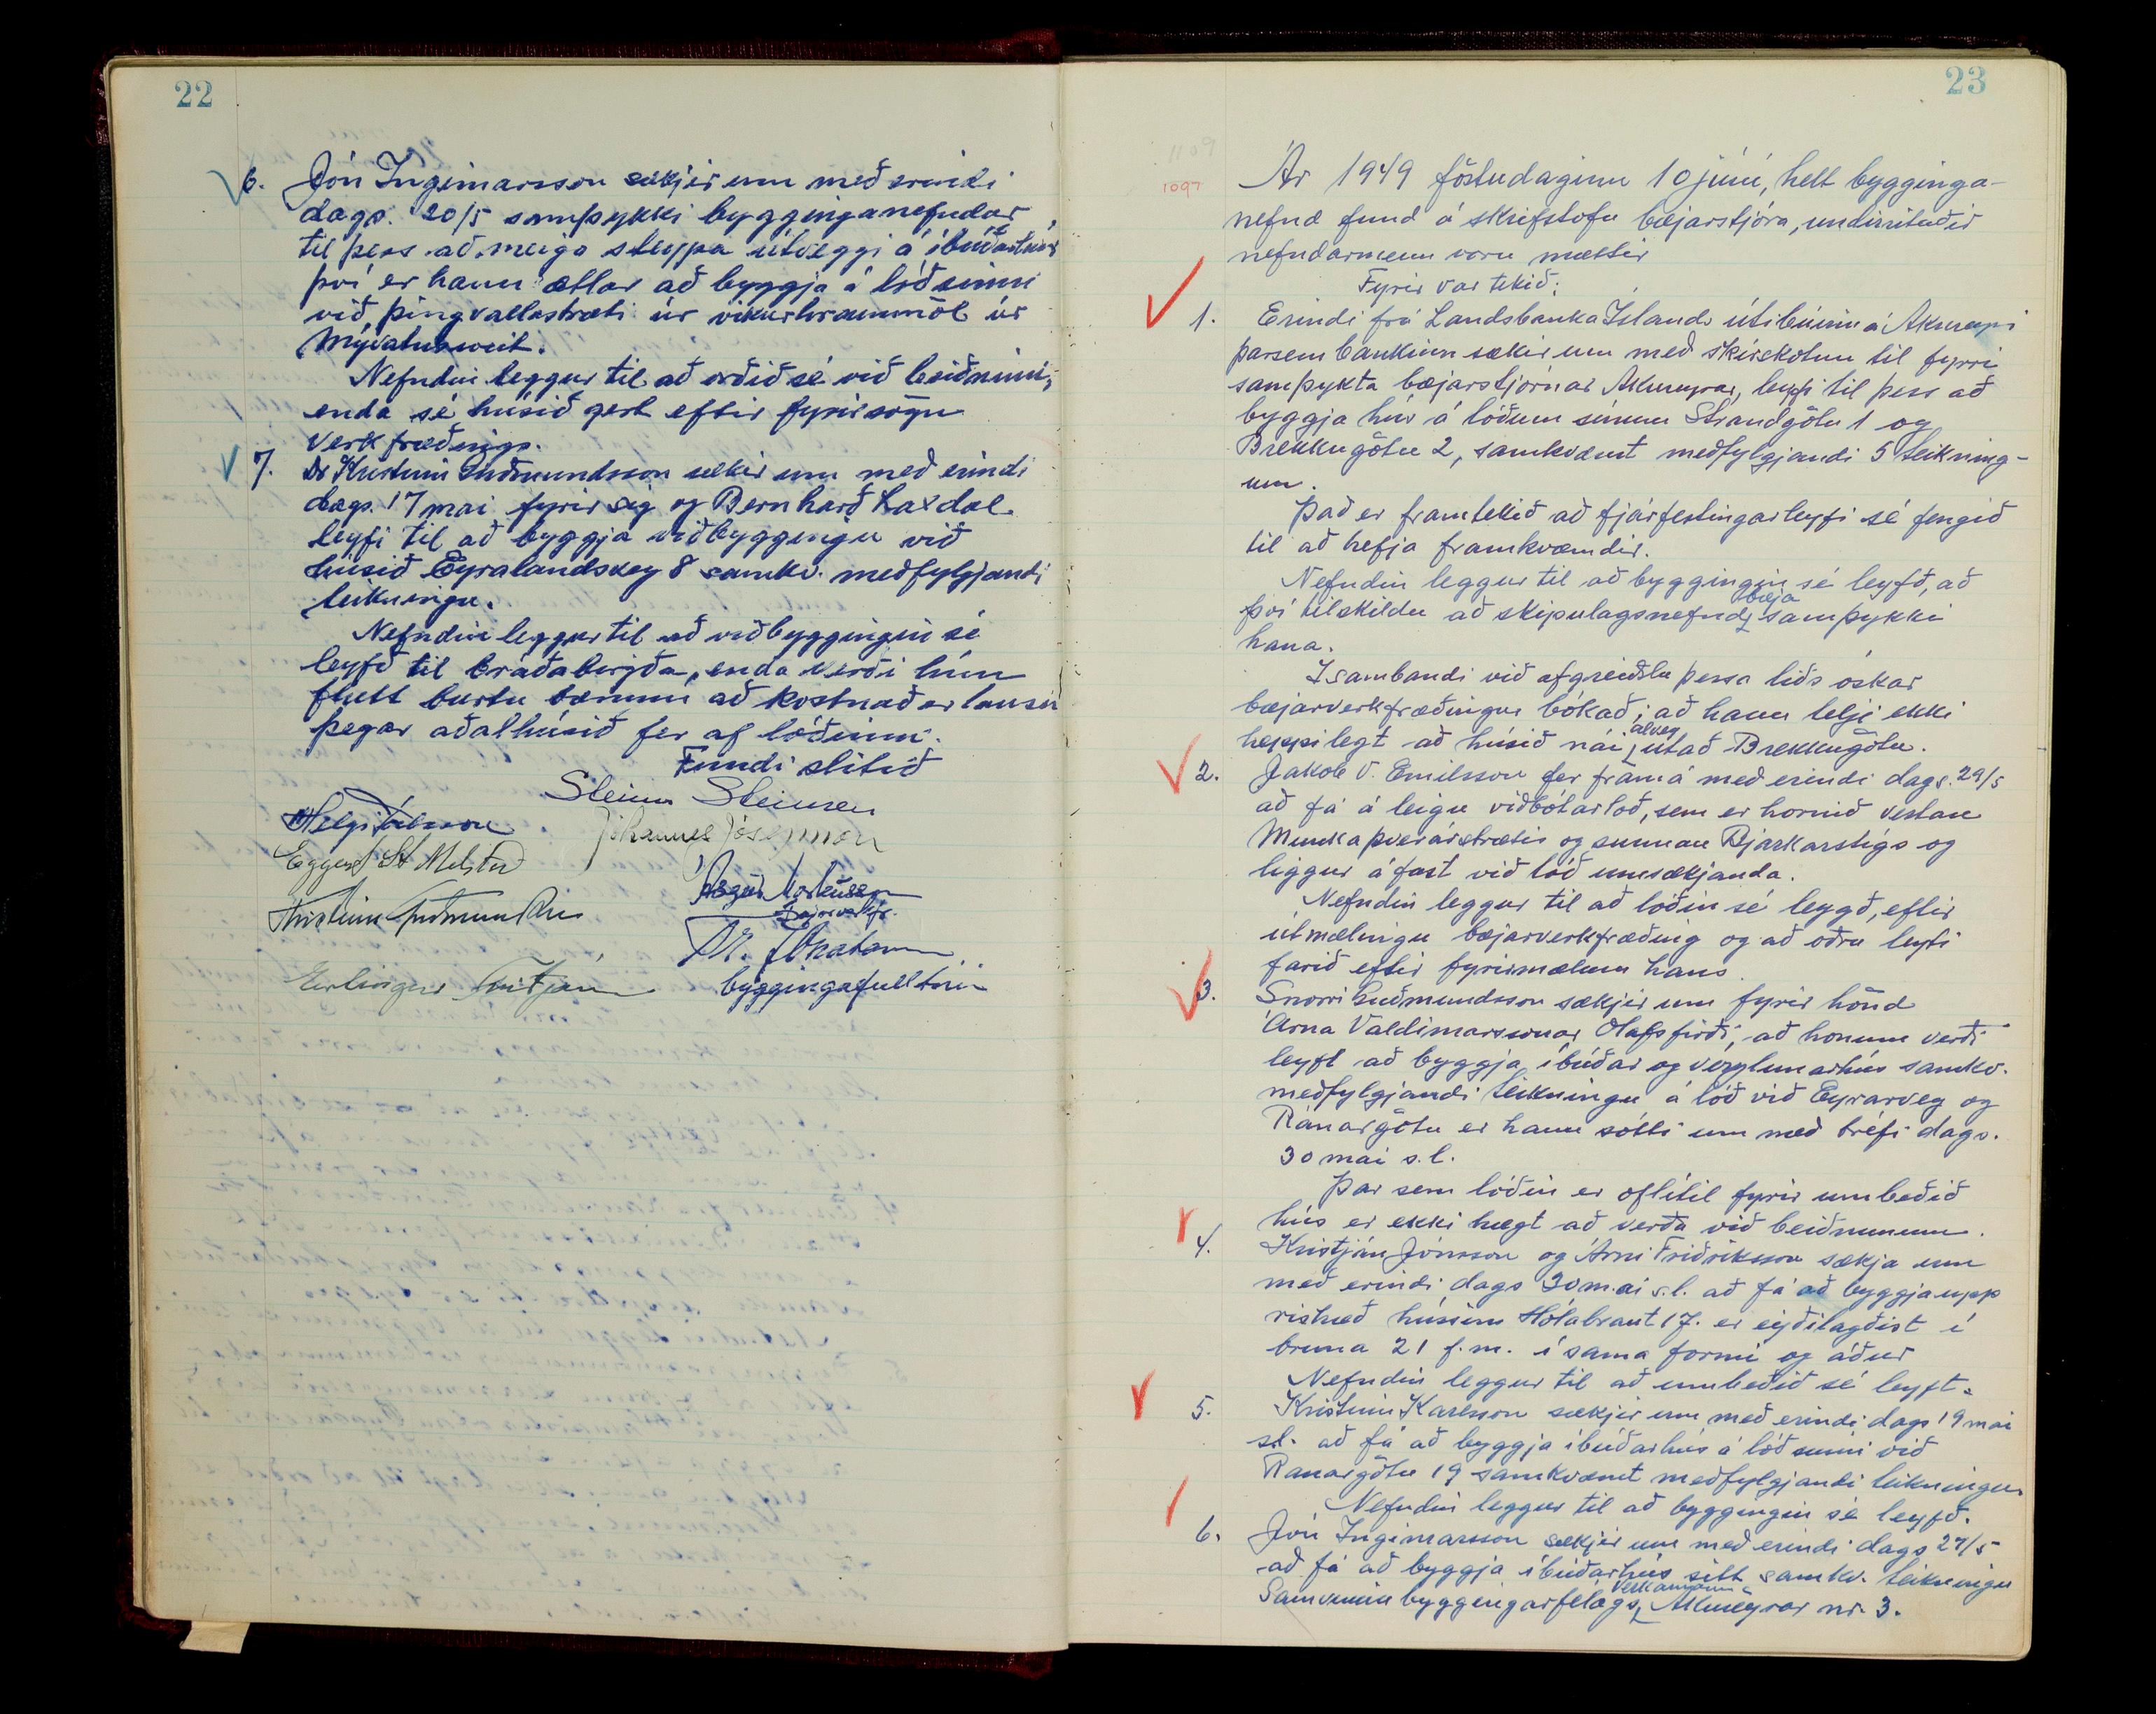 22
6. Jón Ingimarsson sækjir um með erindi
dags. 20/5 samþykki bygginganefndar,
til þess að meiga steypa útveggi á íbúðarhús
því er hann ætlar að byggja á lóð sinni
við þingvallastræti úr vikurhraunmöl úr
Mývatnssveit.
Nefndin leggur til að orðið sé við beiðninni,
enda sé húsið gert eftir fyrirsögn
verkfræðings.
7. Dr Kristinn Guðmundsson sækir um með erindi
dags. 17 mai fyrir sig og Bernharð Laxdal
leyfi til að byggja viðbyggingu við
húsið Eyralandsveg 8 samkv. meðfylgjandi
teikningu.
Nefndin leggur til að viðbyggingin sé
leyfð til bráðabirgða, enda verði hún
flutt burtu bænum að kostnaðarlausu
þegar aðalhúsið fer af lóðinni.
Fundi slitið
Steinn Steinsen
Helgi Pálsson
Jóhannes Jósepsson
Eggert St Melstað
Ásgeir Markússon
bæjarverkfr.
Kristinn Guðmundsson
byggingafulltrúi
Erlingur Friðjónsson
23
1109
1097
Ár 1949 föstudaginn 10 júní, helt bygginga-
nefnd fund á skrifstofu bæjarstjóra, undirritaðir
nefndarmenn voru mættir
Fyrir var tekið:
1. Erindi frá Landsbanka Íslands útibúinu á Akureyri
þarsem bankinn sækir um með skírskotun til fyrri
samþykta bæjarstjórnar Akureyrar, leyfi til þess að
byggja hús á lóðum sínum Strandgötu 1 og
Brekkugötu 2, samkvæmt meðfylgjandi 5 teikning-
um.
Það er framtekið að fjárfestingarleyfi sé fengið
til að hefja framkvæmdir.
Nefndin leggur til að byggingin sé leyfð, að
því tilskildu að skipulagsnefnd bæja samþykki
hana.
Í sambandi við afgreiðslu þessa liðs óskar
bæjarverkfræðingur bókað; að hann telji ekki
heppilegt að húsið nái alveg útað Brekkugötu.
2. Jakob V. Emilsson fer fram á með erindi dags. 29/5
að fá á leigu viðbótarlóð, sem er hornið vestan
Munkaþverárstrætis og sunnan Bjarkarstígs og
liggur áfast við lóð umsækjanda.
Nefndin leggur til að lóðin sé leygð, eftir
útmælingu bæjarverkfræðing og að öðru leyti
farið eftir fyrirmælum hans.
3. Snorri Guðmundsson sækjir um fyrir hönd
Árna Valdimarssonar Olafsfirði, að honum verði
leyft að byggja íbúðar og verzlunarhús samkv.
meðfylgjandi teikningu á lóð við Eyrarveg og
Ránargötu er hann sótti um með bréfi dags.
30 mai s.l.
Þar sem lóðin er oflítil fyrir umbeðið
hús er ekki hægt að verða við beiðnunum.
4. Kristján Jónsson og Árni Friðriksson sækja um
með erindi dags 30 mai s.l. að fá að byggja upp
rishæð hússins Hólabraut 17. er eyðilagðist í
bruna 21 f.m. í sama formi og áður
Nefndin leggur til að umbeðið sé leyft.
5. Kristinn Karlsson sækjir um með erindi dags 19 mai
s.l. að fá að byggja íbúðarhús á lóð sinni við
Ranargötu 19 samkvæmt meðfylgjandi teikningu
Nefndin leggur til að byggingin sé leyfð.
6. Jón Ingimarsson sækjir um með erindi dags 27/5
að fá að byggja íbúðarhús sitt samkv. teikningu
Samvinnubyggingarfélags verkamanna Akureyrar nr. 3.